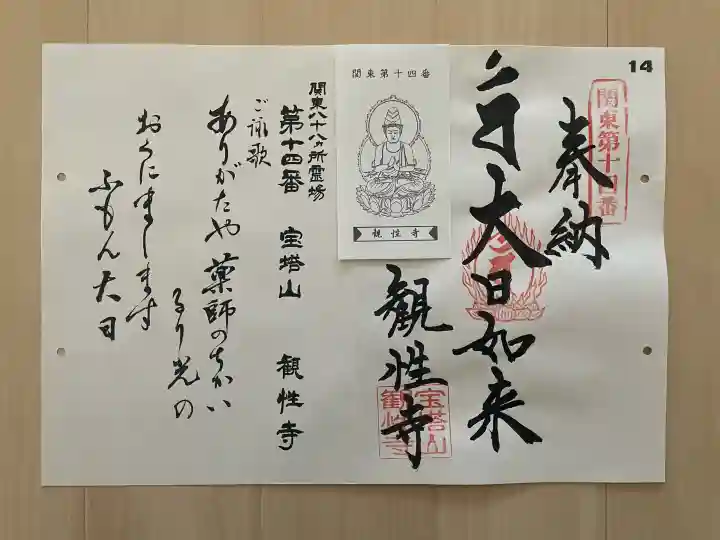 14
関東第十四番
奉納
大日如来
観性寺
宝塔山
観性寺
関東第十四番
観性寺
関東八十八ヵ所霊場
第十四番 宝塔山 観性寺
ご詠歌
ありがたや 薬師のちかい
るり光の
おくにまします
ふもん大日